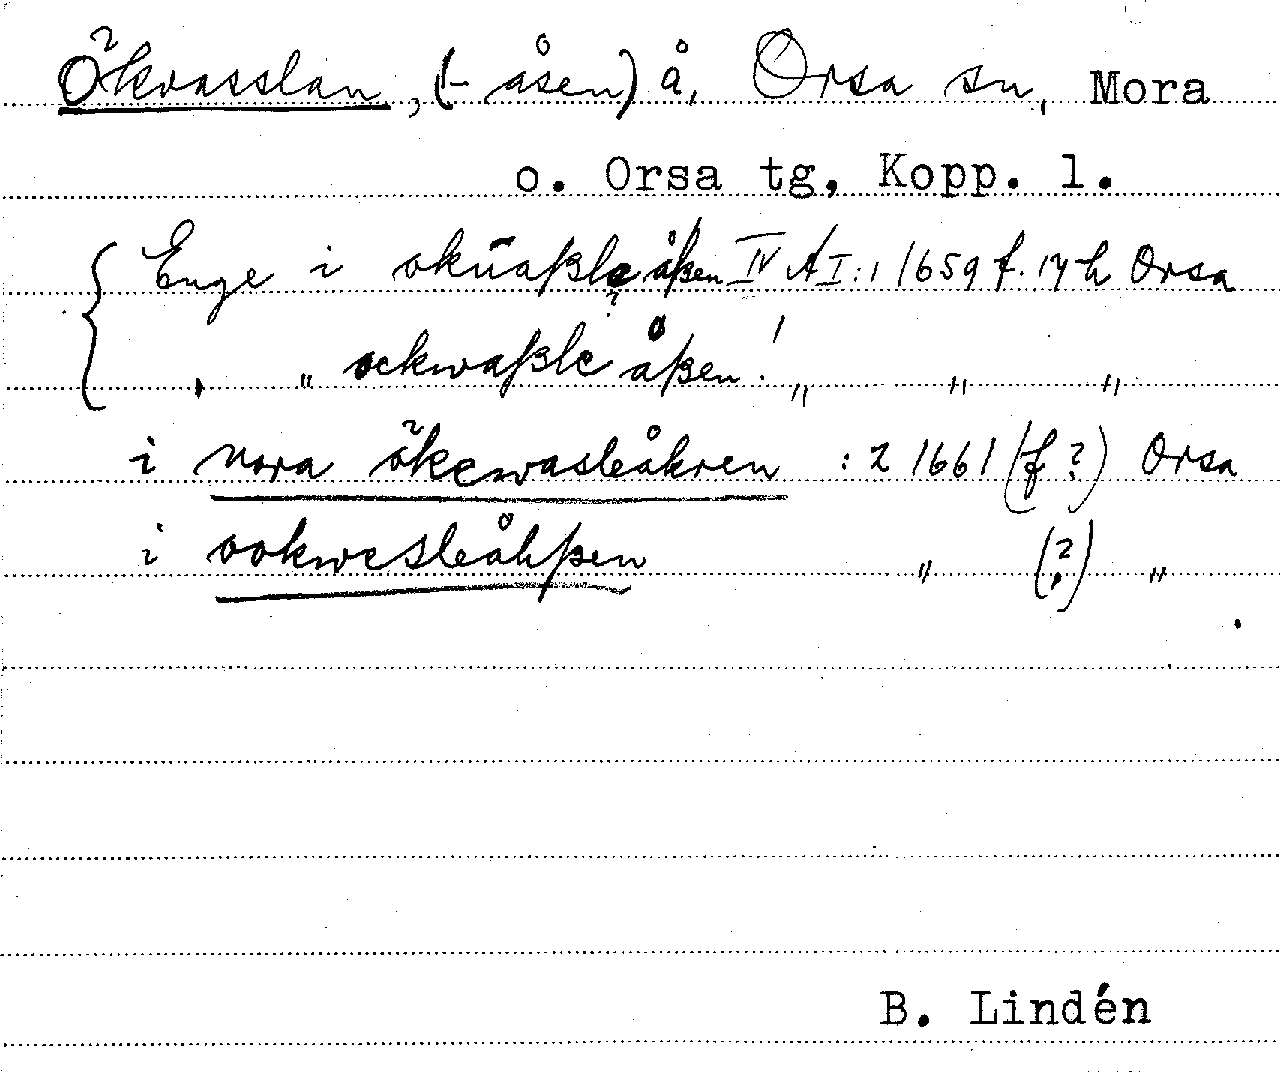 Ökvasslan, (-åsen) å, Orsa sn, Mora
o. Orsa tg, Kopp. l.
Enge i oküaßle åßen IV AI:1 1659 f. 17 h Orsa
" " ockwaßle åßen! " " "
i nora ökewasleåkren :2 1661 (f?) Orsa
i ookwesleåhßen " (?) "
B. Lindén